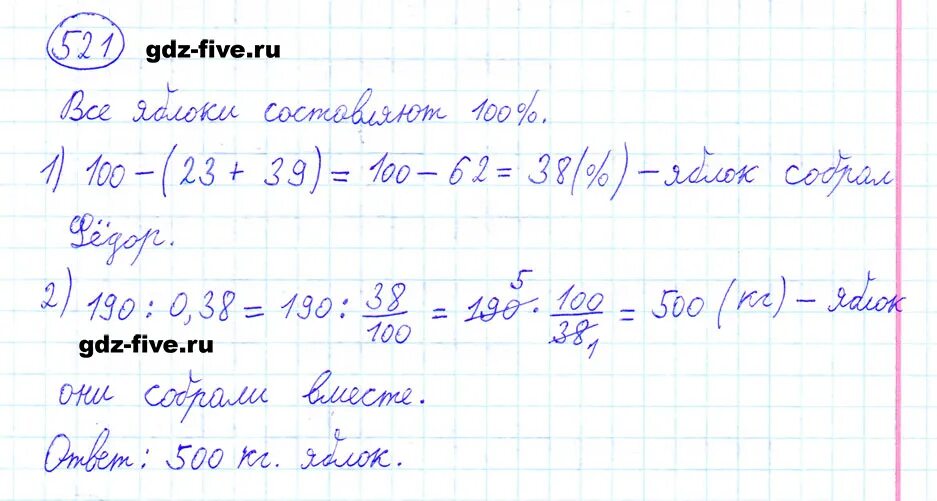 521 gdz-five.ru
Все яблоки составляют 100%.
1) 100 – (23 + 39) = 100 – 62 = 38(%) – яблок собрал
Фёдор.
2) 190 : 0,38 = 190 : 38/100 = 190 5 · 100/38 1 = 500 (кг) – яблок
gdz-five.ru
они собрали вместе.
Ответ: 500 кг. яблок.